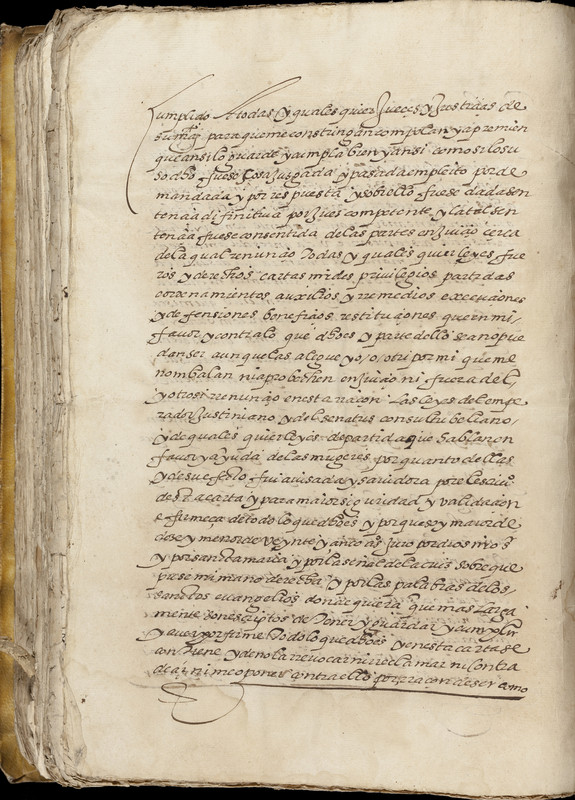 cumplido A todas y quales quier Jueces y Justicias de
su mag para que me constringan conpelan y apremien
que ansi lo guarde y cumpla bien y ansi como si lo su
so dho fuese cosa juzgada y pasada en pleito por de
mandada y por respuesta y sobre ello fuese dada sen
tencia difinitiva por juez competente y la tal sen
tencia fuese consentida de las partes en juicio cerca
de la qual renuncio todas y quales quier leyes fue
ros y derechos cartas mdes privilegios partidas
ordenamientos auxilios y remedios excepciones
y defensiones beneficios restituciones que en mi
favor y contra lo que dho es y parte dello sean o pue
dan ser aunque las alegue yo, o, otri por mi que me
non balan ni aprobechen en juicio ni fuera del,
y otrosi renuncio en esta racon las leys del empe
rador Justiniano y del senatus consultu beliano,
y de quales quier leyes de partida que hablan en
favor y ayuda de las mugeres por quanto de ellas
y de su efecto fui avisada y savidora por el escriuo
desta carta y para maior siguridad y validacion
e firmeça de todo lo que dho es y porque soy maior de
doce y menor de veynte y cinco as juro por dios nro sr
y por santa maria y por la señal de la cruz sobre que
puse mi mano derecha, y por las palabras de los
santos evangelios donde quiera que mas larga
mente son escriptos de tener y guardar y cumplir
y aver por firme todo lo que dho es y en esta carta se
contiene y de no la revocar ni reclamar ni contra
decir ni me oponer contra ello por racon de ser como